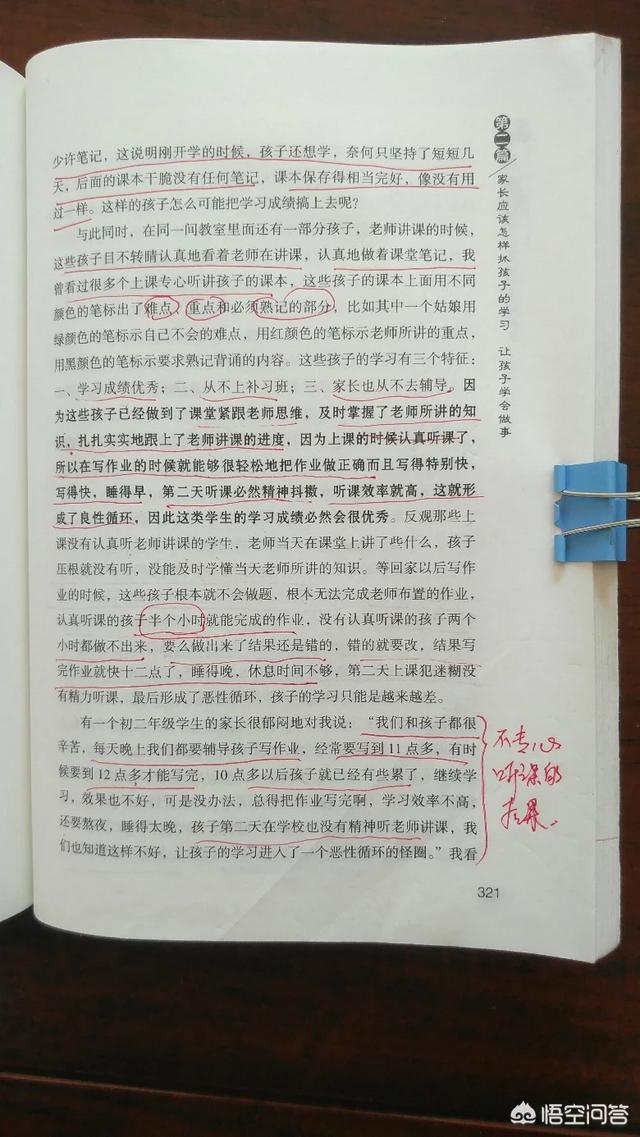 少许笔记，这说明刚开学的时候，孩子还想学，奈何只坚持了短短几
天，后面的课本干脆没有任何笔记，课本保存得相当完好，像没有用
过一样。这样的孩子怎么可能把学习成绩搞上去呢？
与此同时，在同一间教室里面还有一部分孩子，老师讲课的时候，
这些孩子目不转睛认真地看着老师在讲课，认真地做着课堂笔记，我
曾看过很多个上课专心听讲孩子的课本，这些孩子的课本上面用不同
颜色的笔标出了难点、重点和必须熟记的部分，比如其中一个姑娘用
绿颜色的笔标示自己不会的难点，用红颜色的笔标示老师所讲的重点，
用黑颜色的笔标示要求熟记背诵的内容。这些孩子的学习有三个特征：
一、学习成绩优秀；二、从不上补习班；三、家长也从不去辅导。因
为这些孩子已经做到了课堂紧跟老师思维，及时掌握了老师所讲的知
识，扎扎实实地跟上了老师讲课的进度，因为上课的时候认真听课了，
所以在写作业的时候就能够很轻松地把作业做正确而且写得特别快，
写得快，睡得早，第二天听课必然精神抖擞，听课效率就高，这就形
成了良性循环，因此这类学生的学习成绩必然会很优秀。反观那些上
课没有认真听老师讲课的学生，老师当天在课堂上讲了些什么，孩子
压根就没有听，没能及时学懂当天老师所讲的知识。等回家以后写作
业的时候，这些孩子根本就不会做题，根本无法完成老师布置的作业，
认真听课的孩子半个小时就能完成的作业，没有认真听课的孩子两个
小时都做不出来，要么做出来了结果还是错的，错的就要改，结果写
完作业就快十二点了，睡得晚，休息时间不够，第二天上课犯迷糊没
有精力听课，最后形成了恶性循环，孩子的学习只能是越来越差。
有一个初二年级学生的家长很郁闷地对我说：“我们和孩子都很
辛苦，每天晚上我们都要辅导孩子写作业，经常要写到11点多，有时
候要到12点多才能写完，10点多以后孩子就已经有些累了，继续学
习，效果也不好，可是没办法，总得把作业写完啊，学习效率不高，
还要熬夜，睡得太晚，孩子第二天在学校也没有精神听老师讲课，我
们也知道这样不好，让孩子的学习进入了一个恶性循环的怪圈。”我看
321
第二篇
家长应该怎样抓孩子的学习 让孩子学会做事
不专心
听课的
悟空问答